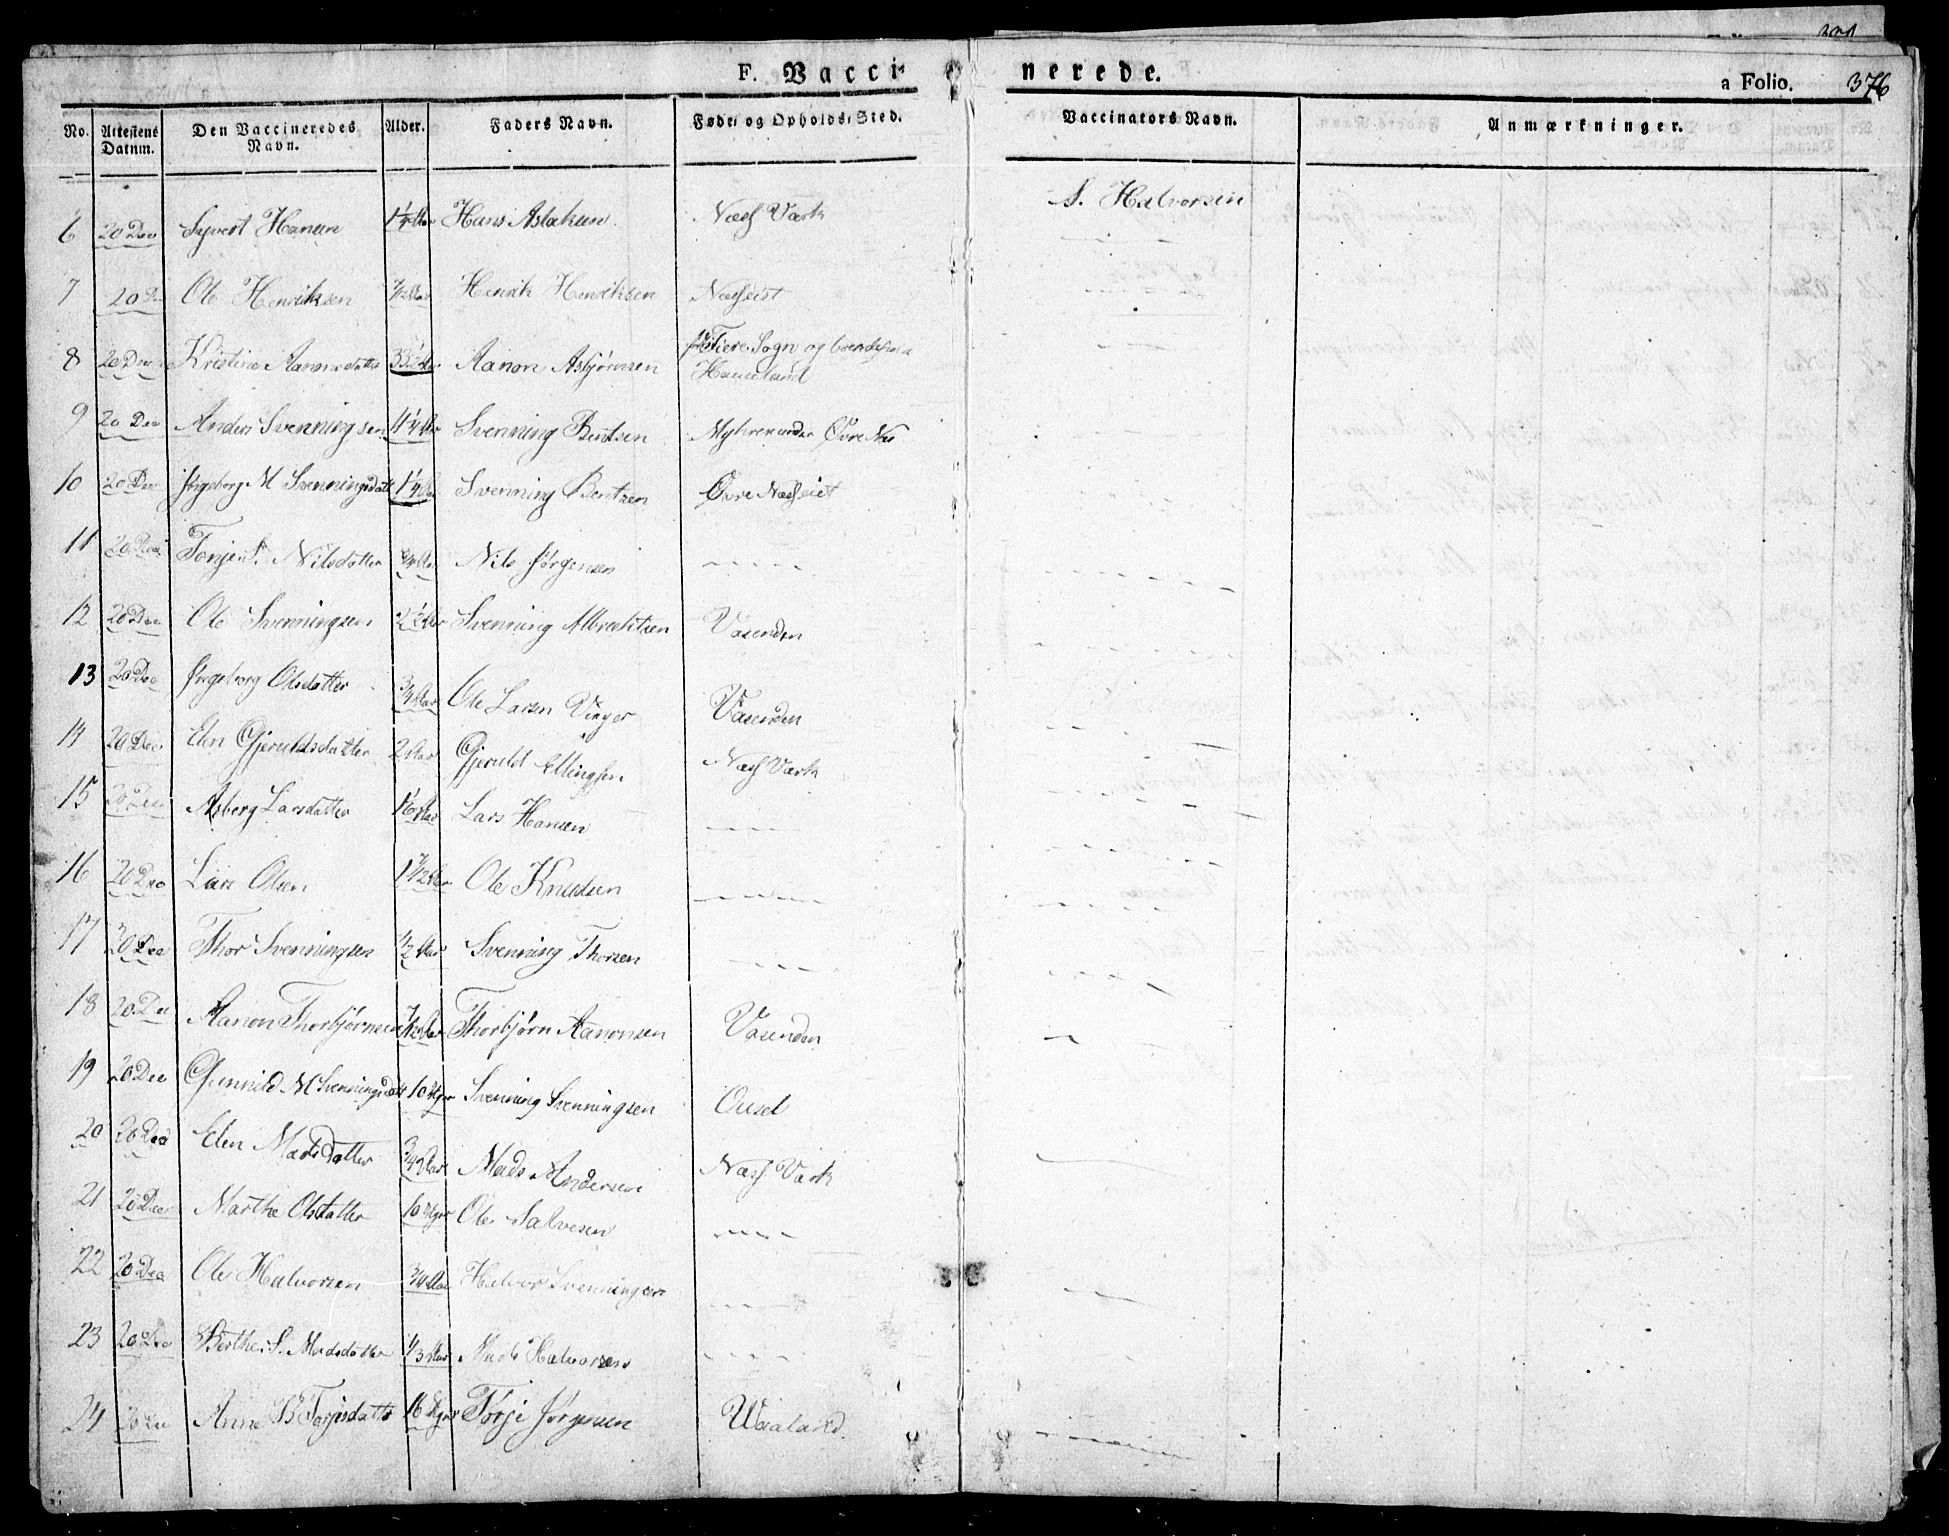 F. Vaccinerede.
a Folio. 376
No. Attestens Datum. Den Vaccineredes Navn. Alder. Faders Navn. Føde- og Opholds-Sted. Vaccinators Navn. Anmærkninger.
6 20 Dec Syvert Hansen 1 1/4 Aar Hans Aslaksen Næss Værk S. Halvorsen
7 20 De Ole Henriksen 7/12 Aar Henrik Henriksen Næsseiet
8 20 Dec Kristine Aanonsdatter Aanon Asbjørnsen Fiere Sogn og
Haueland
9 20 Dec Anders Svenningsen 4 1/4 Aar Svenning Bentsen Myhren under Øvre Næs
10 20 Dec Ingeborg M Svenningsdatt 1 1/4 Aar Svenning Bentsen Øvre Næsseiet
11 20 Dec Nilsdatter 3/4 Aar Nils Jørgensen
12 20 Dec Ole Svenningsen 2 1/2 Aar Svenning Albrechtsen Vasenden
13 20 Dec Ingeborg Olsdatter 3/4 Aar Ole Larsen Vinger Vasenden
14 20 Dec Elen Gjeruldsdatter 2 Aar Gjeruld Ellingsen Næss Værk
15 20 Dec Asberg Larsdatter 1 1/6 Aar Lars Hansen
16 20 Dec Lars Olsen 1 7/12 Aar Ole Knudsen
17 20 Dec Thor Svenningsen 1/2 Aar Svenning Thorsen
18 20 Dec Aanon Thorbjørnsen 7/12 Aar Thorbjørn Aanonsen Vasenden
19 20 Dec Gunnild M Svenningsdatt 10 Uger Svenning Svenningsen Ousel
20 20 Dec Elen Madsdatter 3/4 Aar Mads Andersen Næss Værk
21 20 Dec Marthe Olsdatter 10 Uger Ole Salvesen
22 20 Dec Ole Halvorsen 3/4 Aar Halvor Svenningsen
23 20 Dec Berthe S. Madsdatter 1/3 Aar Mads Halvorsen
24 20 Dec Anne B Torjesdatter 16 Uger Torje Jørgensen Waaland